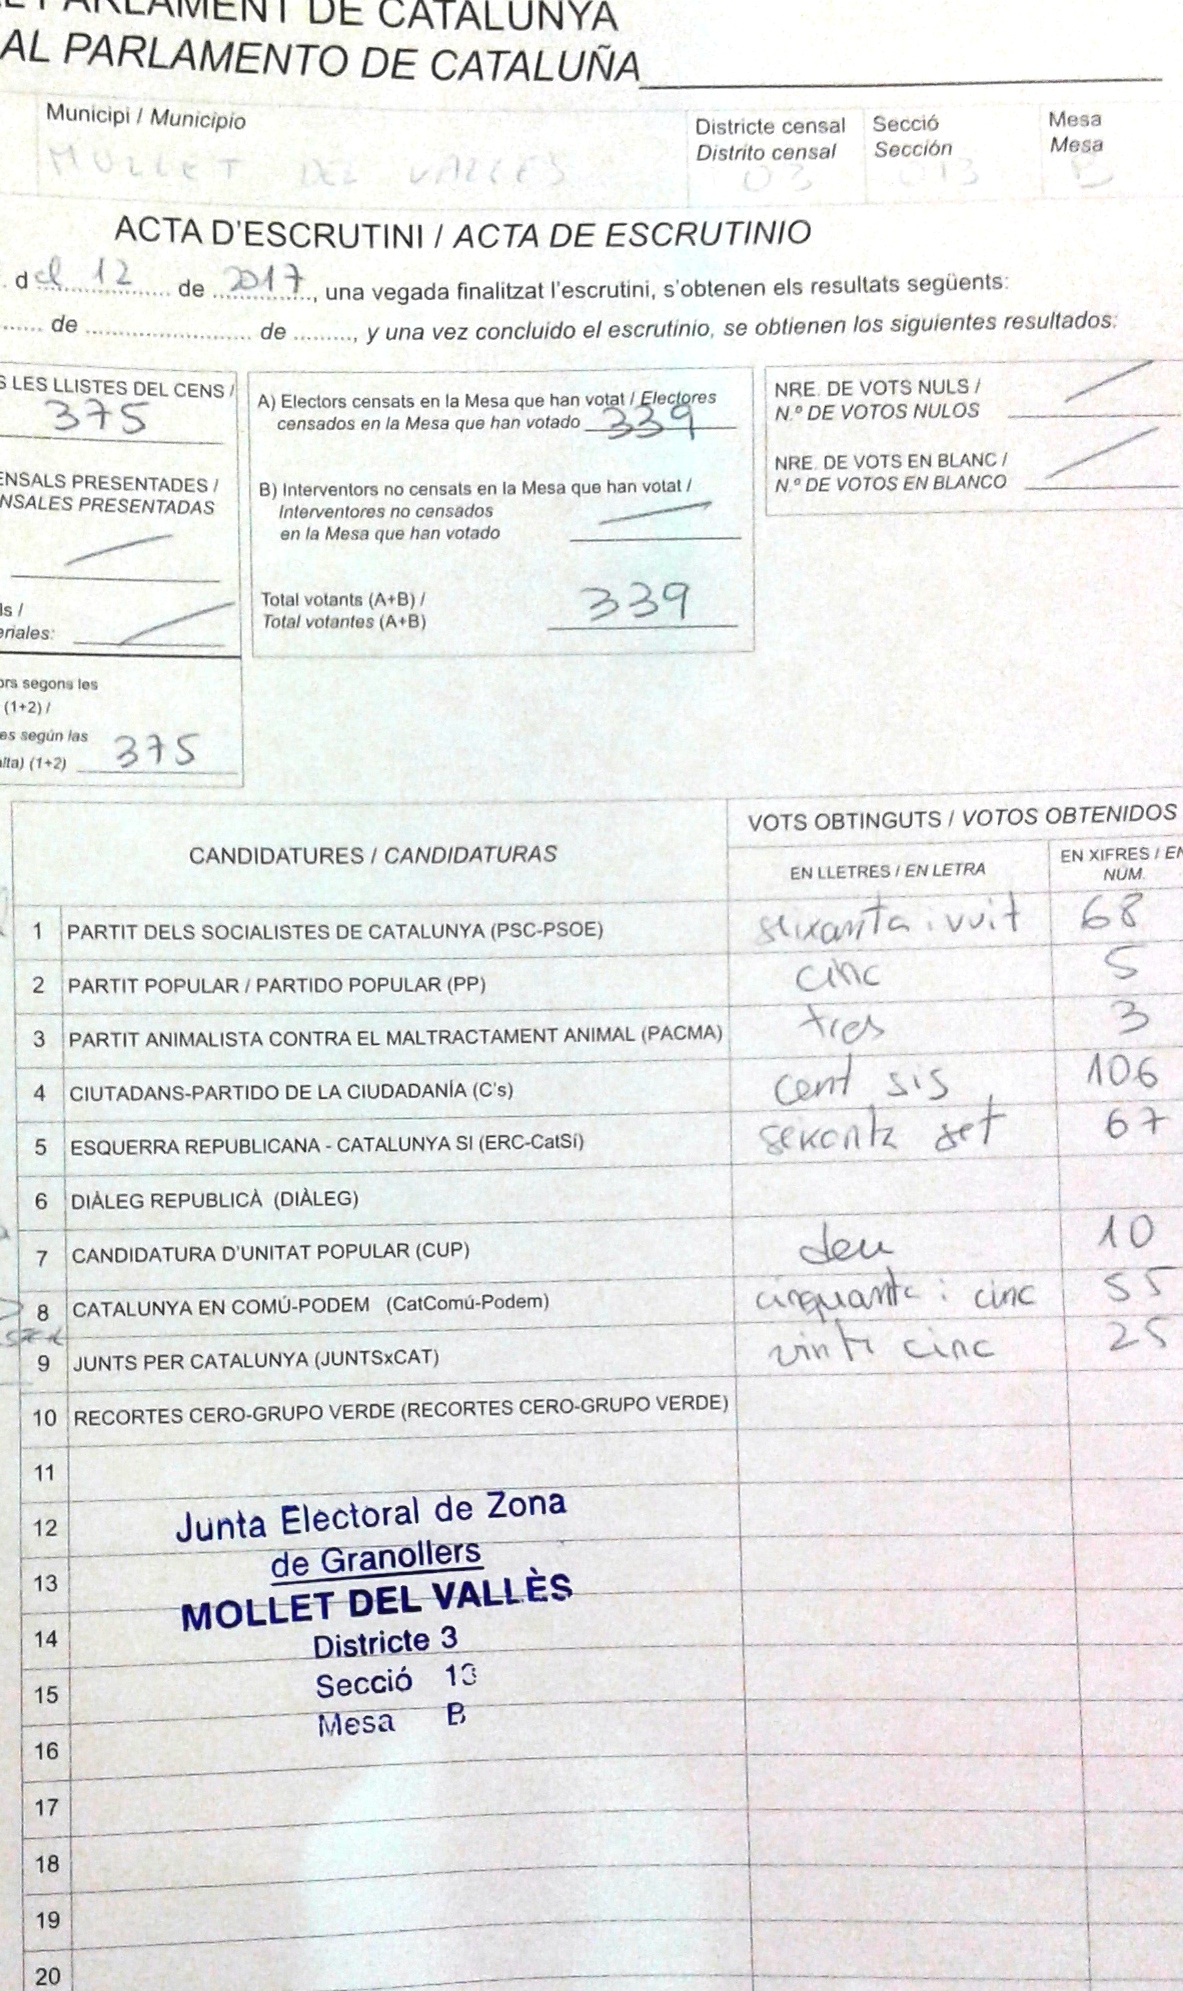 EL PARLAMENT DE CATALUNYA
AL PARLAMENTO DE CATALUÑA
Municipi / Municipio
MOLLET DEL VALLES
Districte censal
Distrito censal
03
Secció
Sección
013
Mesa
Mesa
B
ACTA D'ESCRUTINI / ACTA DE ESCRUTINIO
. d el 12 de 2017, una vegada finalitzat l'escrutini, s'obtenen els resultats següents:
...... de ............................ de ........., y una vez concluido el escrutinio, se obtienen los siguientes resultados:
S LES LLISTES DEL CENS /
375
ENSALS PRESENTADES /
NSALES PRESENTADAS
ls /
eriales:
ors segons les
(1+2) /
es según las
alta) (1+2) 375
A) Electors censats en la Mesa que han votat / Electores
censados en la Mesa que han votado 339
B) Interventors no censats en la Mesa que han votat /
Interventores no censados
en la Mesa que han votado
Total votants (A+B) /
Total votantes (A+B)
339
NRE. DE VOTS NULS /
N.º DE VOTOS NULOS
NRE. DE VOTS EN BLANC /
N.º DE VOTOS EN BLANCO
CANDIDATURES / CANDIDATURAS
VOTS OBTINGUTS / VOTOS OBTENIDOS
EN LLETRES / EN LETRA
EN XIFRES / EN
NÚM.
1 PARTIT DELS SOCIALISTES DE CATALUNYA (PSC-PSOE) seixanta i vuit 68
2 PARTIT POPULAR / PARTIDO POPULAR (PP) cinc 5
3 PARTIT ANIMALISTA CONTRA EL MALTRACTAMENT ANIMAL (PACMA) tres 3
4 CIUTADANS-PARTIDO DE LA CIUDADANÍA (C's) cent sis 106
5 ESQUERRA REPUBLICANA - CATALUNYA SI (ERC-CatSí) seixanta set 67
6 DIÀLEG REPUBLICÀ (DIÀLEG)
7 CANDIDATURA D'UNITAT POPULAR (CUP) deu 10
8 CATALUNYA EN COMÚ-PODEM (CatComú-Podem) cinquanta i cinc 55
9 JUNTS PER CATALUNYA (JUNTSxCAT) vinti cinc 25
10 RECORTES CERO-GRUPO VERDE (RECORTES CERO-GRUPO VERDE)
11
12
13
14
15
16
17
18
19
20
Junta Electoral de Zona
de Granollers
MOLLET DEL VALLÈS
Districte 3
Secció 13
Mesa B